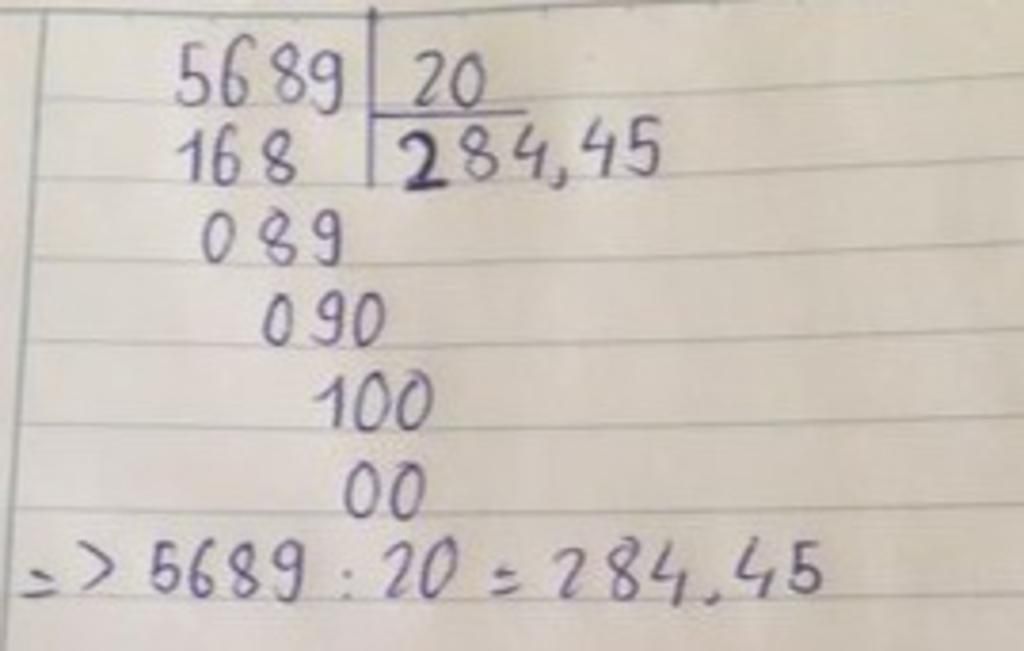 5689 20
168 284,45
089
090
100
00
=> 5689 : 20 = 284,45